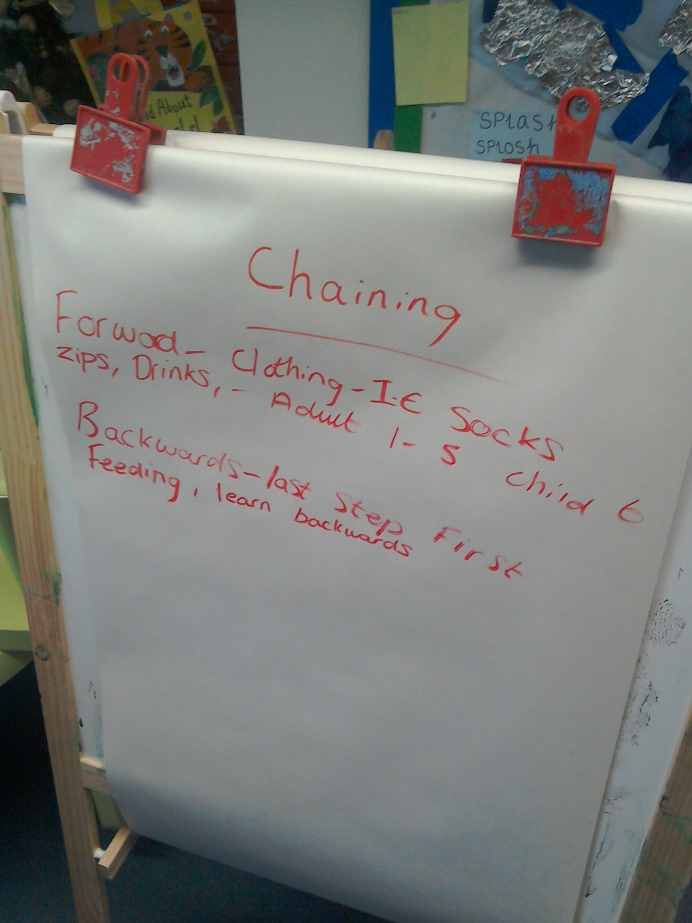 About
SPLASH
SPLOSH
Chaining
Forwod - Clothing - I.E Socks
zips, Drinks, - Adult 1 - 5 child 6
Backwards - last Step First
Feeding, learn backwards